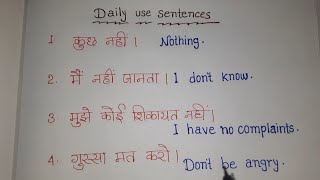 Daily use sentences
1 कुछ नहीं। Nothing.
2. मैं नहीं जानता। I don't know.
3 मुझे कोई शिकायत नहीं।
I have no complaints.
4. गुस्सा मत करो। Don't be angry.